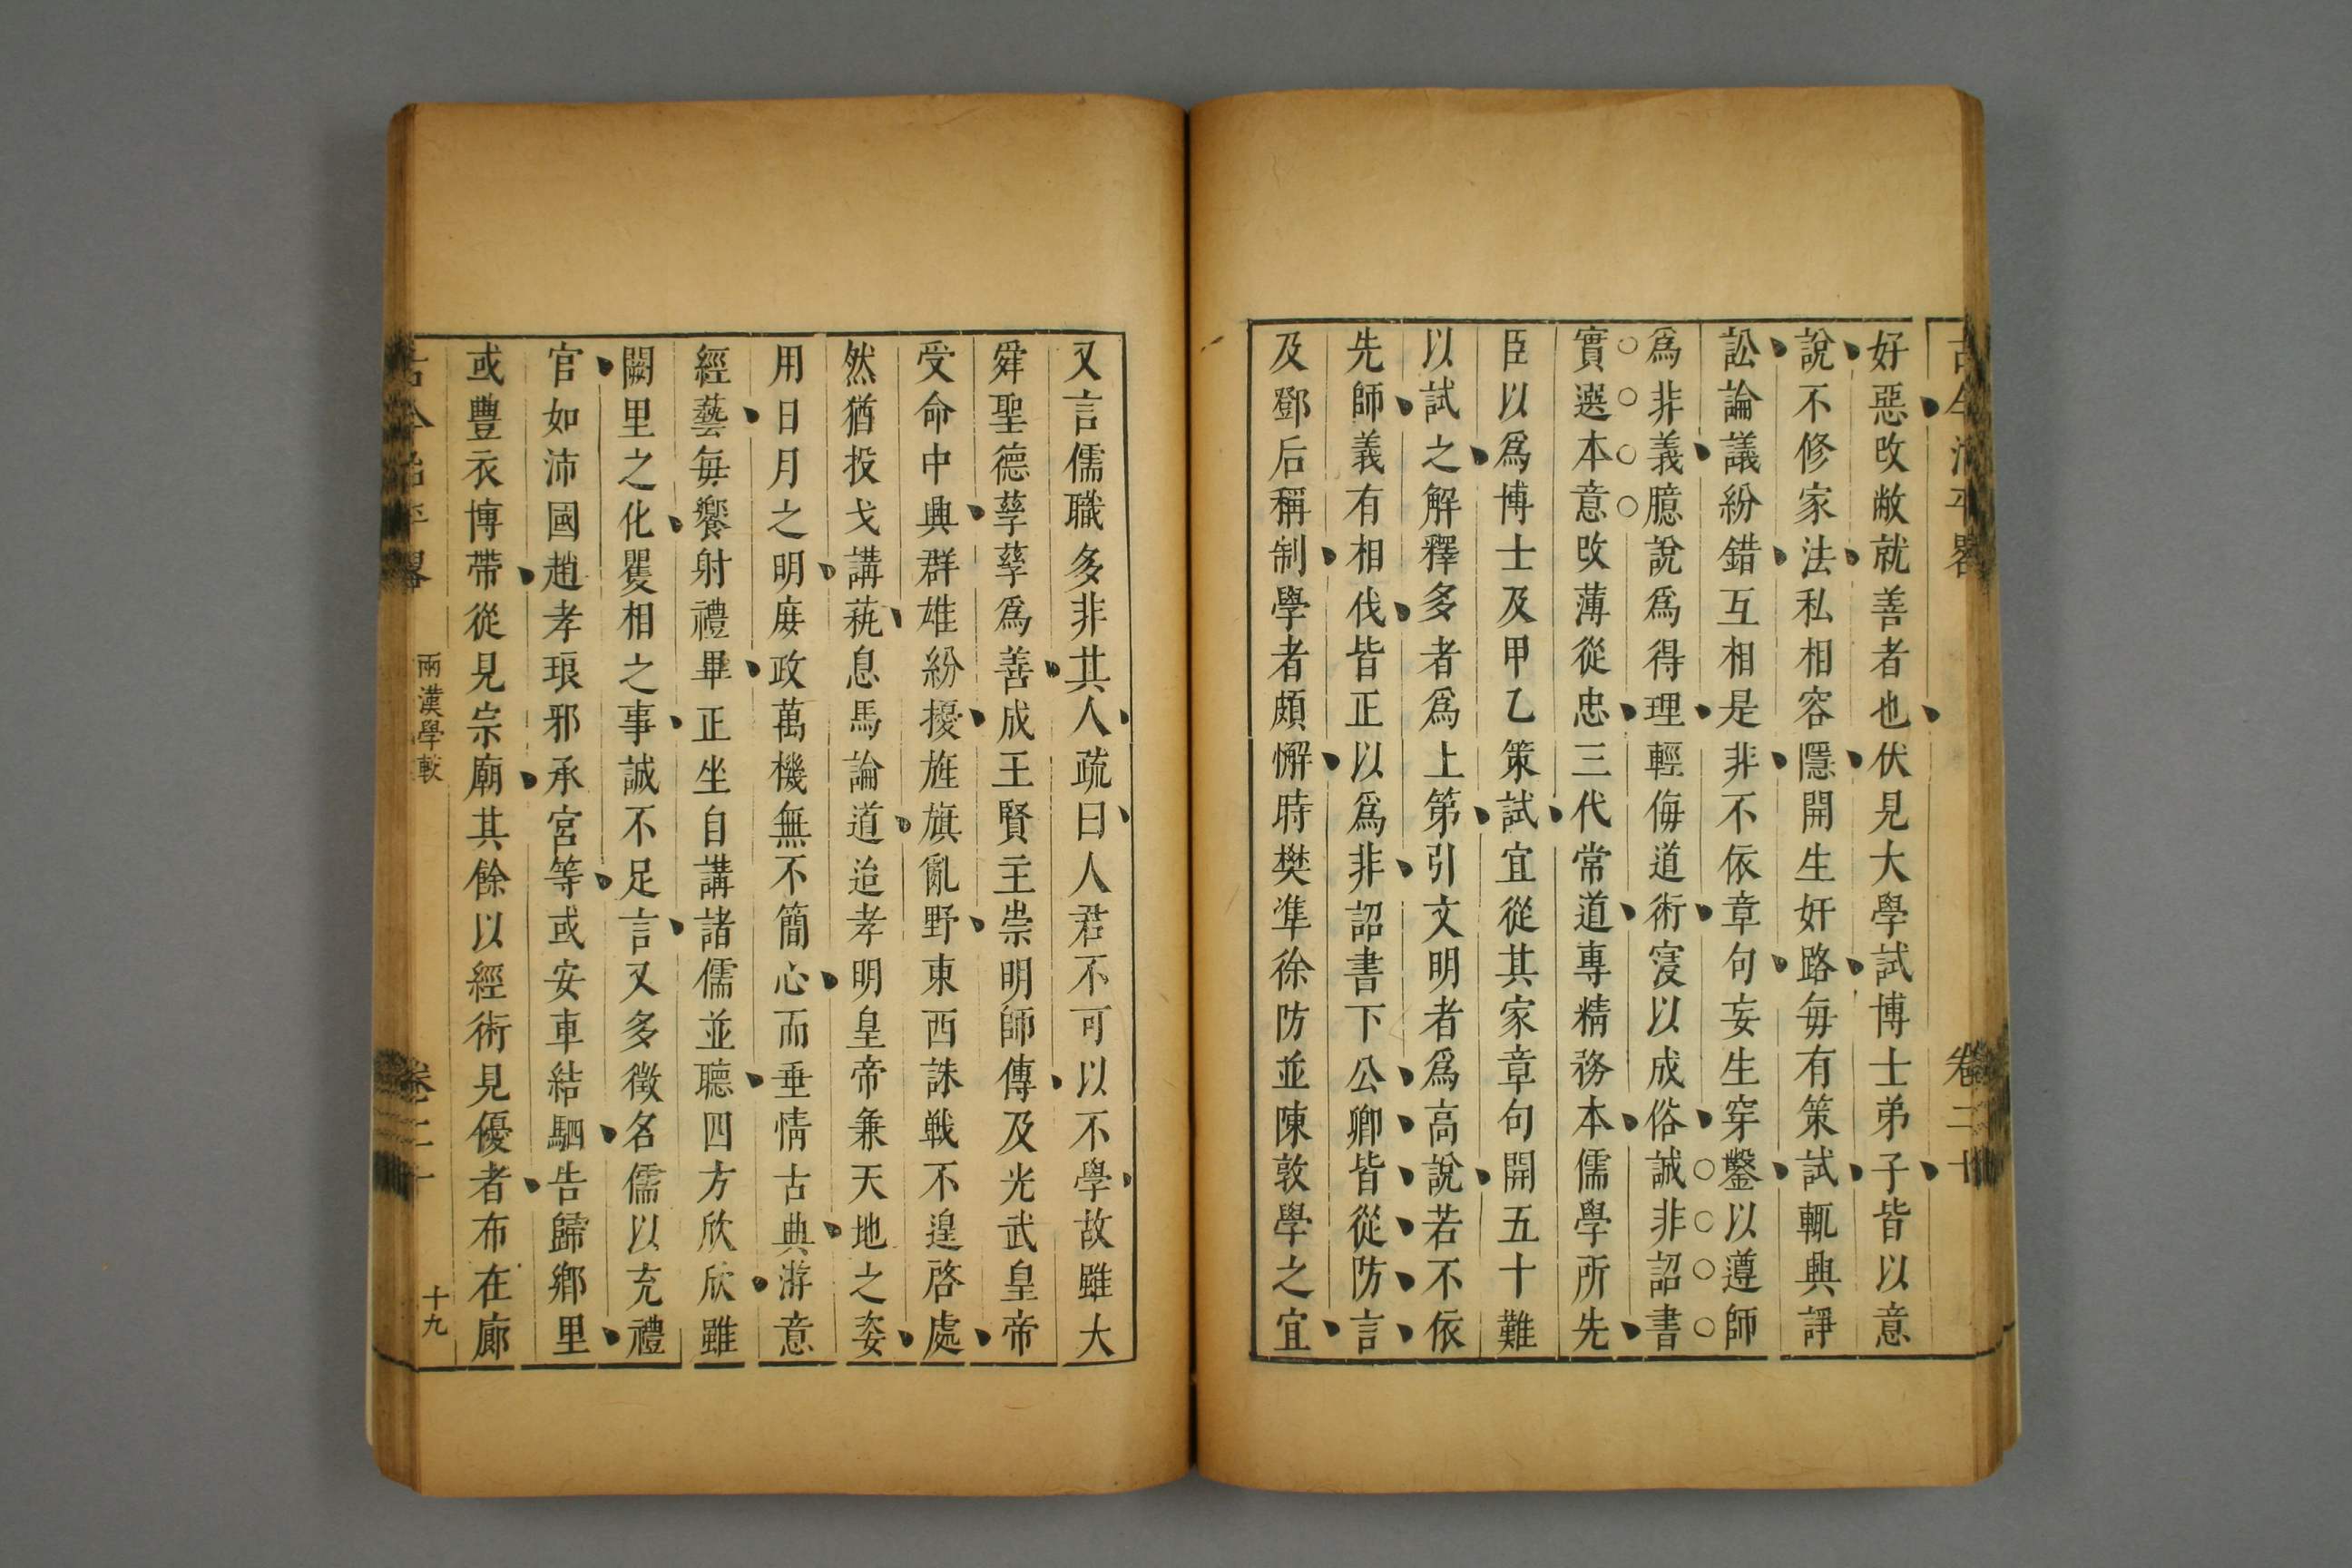 古今治平畧
卷二十
好惡改敝就善者也伏見大學試博士弟子皆以意
說不修家法私相容隱開生奸路每有策試輒興諍
訟論議紛錯互相是非不依章句妄生穿鑿以遵師
爲非義臆說爲得理輕侮道術寖以成俗誠非詔書
實選本意改薄從忠三代常道專精務本儒學所先
臣以爲博士及甲乙策試宜從其家章句開五十難
以試之解釋多者爲上第引文明者爲高說若不依
先師義有相伐皆正以爲非詔書下公卿皆從防言
及鄧后稱制學者頗懈時樊準徐防並陳敦學之宜
又言儒職多非其人疏曰人君不可以不學故雖大
舜聖德孳孳爲善成王賢主崇明師傳及光武皇帝
受命中興群雄紛擾旌旗亂野東西誅戰不遑啓處
然猶投戈講蓺息馬論道迨孝明皇帝兼天地之姿
用日月之明庶政萬機無不簡心而垂情古典游意
經藝每饗射禮畢正坐自講諸儒並聽四方欣欣雖
闕里之化矍相之事誠不足言又多徵名儒以充禮
官如沛國趙孝琅邪承宮等或安車結駟告歸鄉里
或豐衣博帶從見宗廟其餘以經術見優者布在廊
古今治平畧
兩漢學較
卷二十
十九